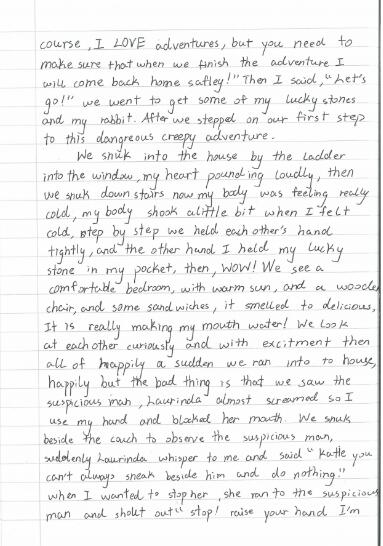 course, I LOVE adventures, but you need to
make sure that when we finish the adventure I
will come back home safley!" Then I said, "Let's
go!" we went to get some of my lucky stones
and my rabbit. After we stepped on our first step
to this dangreous creepy adventure.
We snuk into the house by the ladder
into the window, my heart pounding loudly, then
we snuk down stairs now my body was feeling really
cold, my body shook alittle bit when I felt
cold, step by step we held each other's hand
tightly, and the other hand I held my lucky
stone in my pocket, then, WOW! We see a
comfortable bedroom, with warm sun, and a wooden
chair, and some sandwiches, it smelled to delicious,
It is really making my mouth water! We look
at each other curiously and with excitment then
all of happily a sudden we ran into to house,
happily but the bad thing is that we saw the
suspicious man, Laurinda almost screamed so I
use my hand and blocked her mouth. We snuk
beside the couch to observe the suspicious man,
suddenly Laurinda whisper to me and said "Katie you
can't always sneak beside him and do nothing."
when I wanted to stop her, she ran to the suspicious
man and shout out "stop! raise your hand I'm